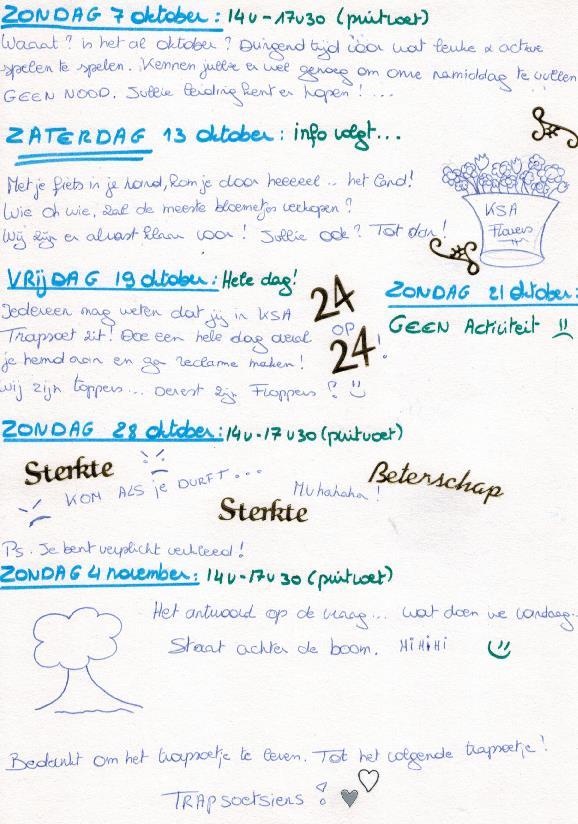 ZONDAG 7 oktober: 14u - 17u30 (puitvoet)
Waaat? is het al oktober? Dringend tijd voor wat leuke & actieve
spelen te spelen. Kennen jullie er wel genoeg om onze namiddag te vullen
GEEN NOOD. Jullie leiding kent er hopen! ...
ZATERDAG 13 oktober: info volgt...
Met je fiets in je hand, kom je door heeeeel .. het land!
Wie oh wie, zal de meeste bloemetjes verkopen?
Wij zijn er alvast klaar voor! Jullie ook? Tot dan!
KSA
Flowers
VRIJDAG 19 oktober: Hele dag!
Iedereen mag weten dat jij in KSA
Trapsoet zit! Doe een hele dag
je hemd aan en ga reclame maken!
wij zijn toppers... Derest zijn Floppers!
24
OP
24!
ZONDAG 21 oktober:
GEEN Activiteit
ZONDAG 28 oktober: 14u - 17u30 (puitvoet)
Sterkte
KOM ALS je DURFT...
Muhahaha!
Beterschap
Sterkte
Ps. Je bent verplicht verkleed!
ZONDAG 4 november: 14u - 17u30 (puitvoet)
Het antwoord op de vraag... wat doen we vandaag..
Staat achter de boom. HiHiHi
Bedankt om het trapsoetje te lezen. Tot het volgende trapsoetje!
TRAPsoetsiens!